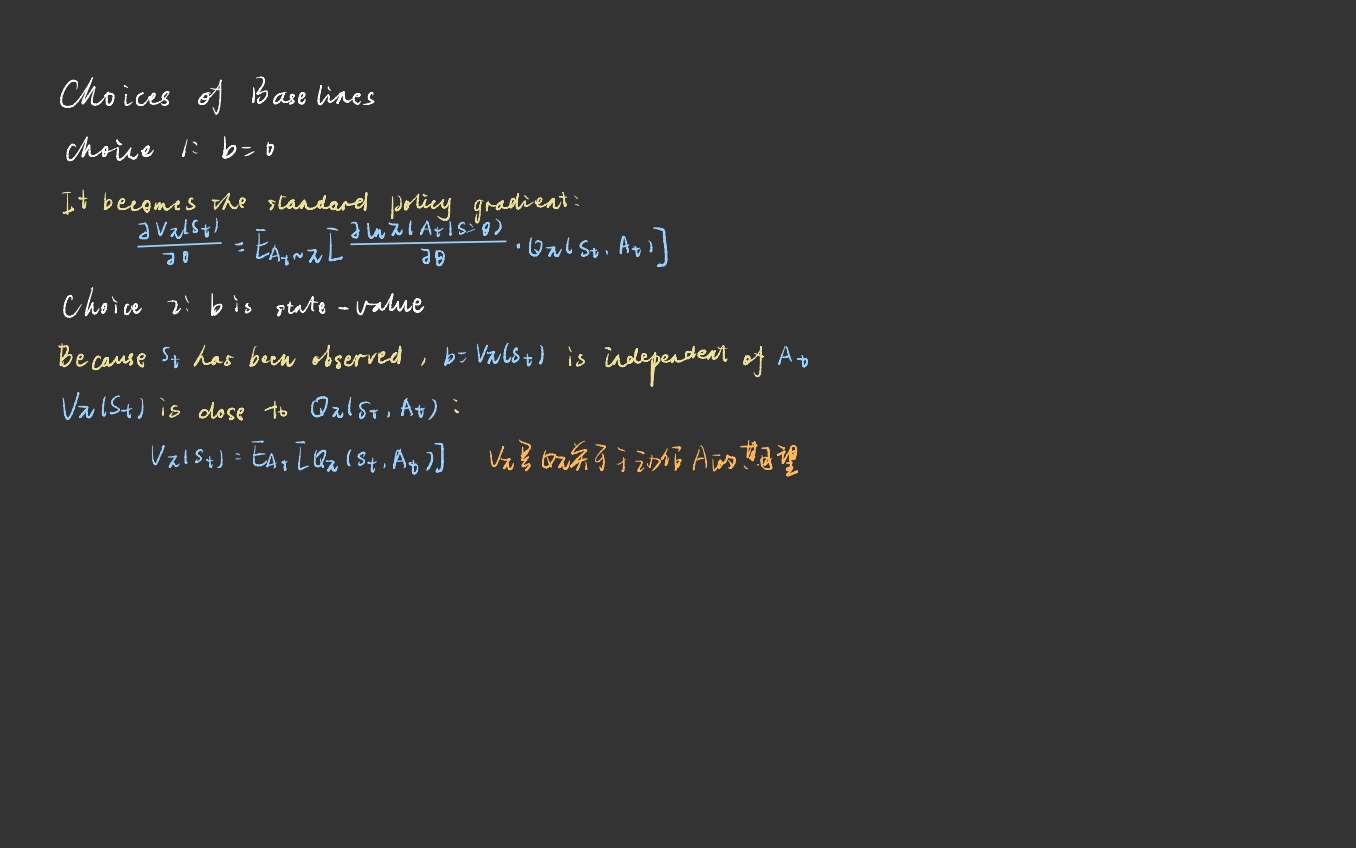 Choices of Baselines
Choice 1: b=0
It becomes the standard policy gradient:
∂Vπ(St)/∂θ = E_{At~π}[∂lnπ(At|St;θ)/∂θ · Qπ(St, At)]
Choice 2: b is state-value
Because St has been observed, b=Vπ(St) is independent of At
Vπ(St) is close to Qπ(St, At):
Vπ(St) = E_{At}[Qπ(St, At)] Vπ是Qπ关于于动作A的期望